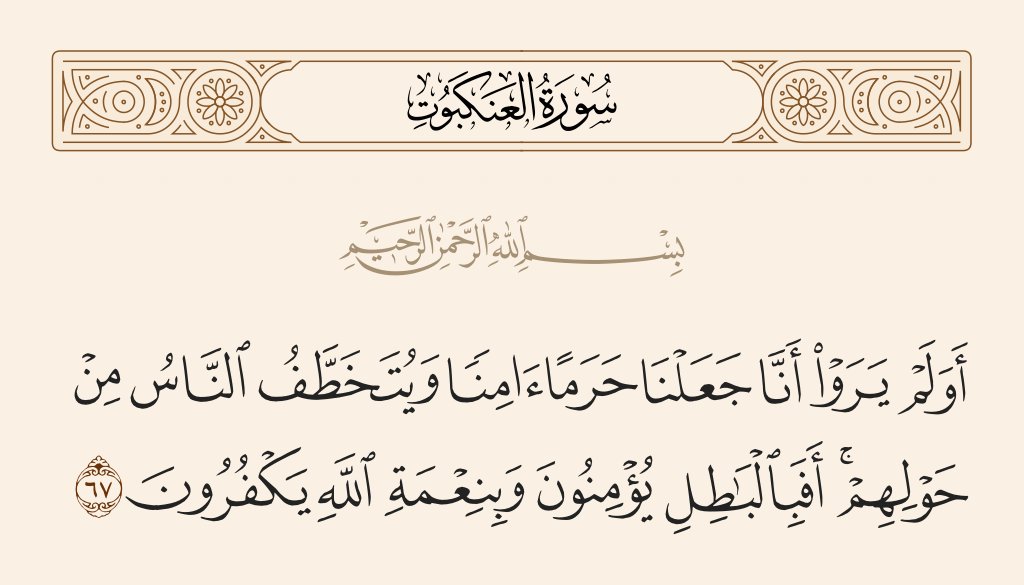 سُورَةُ الْعَنكَبُوتِ
بِسْمِ ٱللَّهِ ٱلرَّحْمَٰنِ ٱلرَّحِيمِ
أَوَلَمْ يَرَوْا۟ أَنَّا جَعَلْنَا حَرَمًا ءَامِنًا وَيُتَخَطَّفُ ٱلنَّاسُ مِنْ
حَوْلِهِمْ ۚ أَفَبِٱلْبَٰطِلِ يُؤْمِنُونَ وَبِنِعْمَةِ ٱللَّهِ يَكْفُرُونَ ٦٧